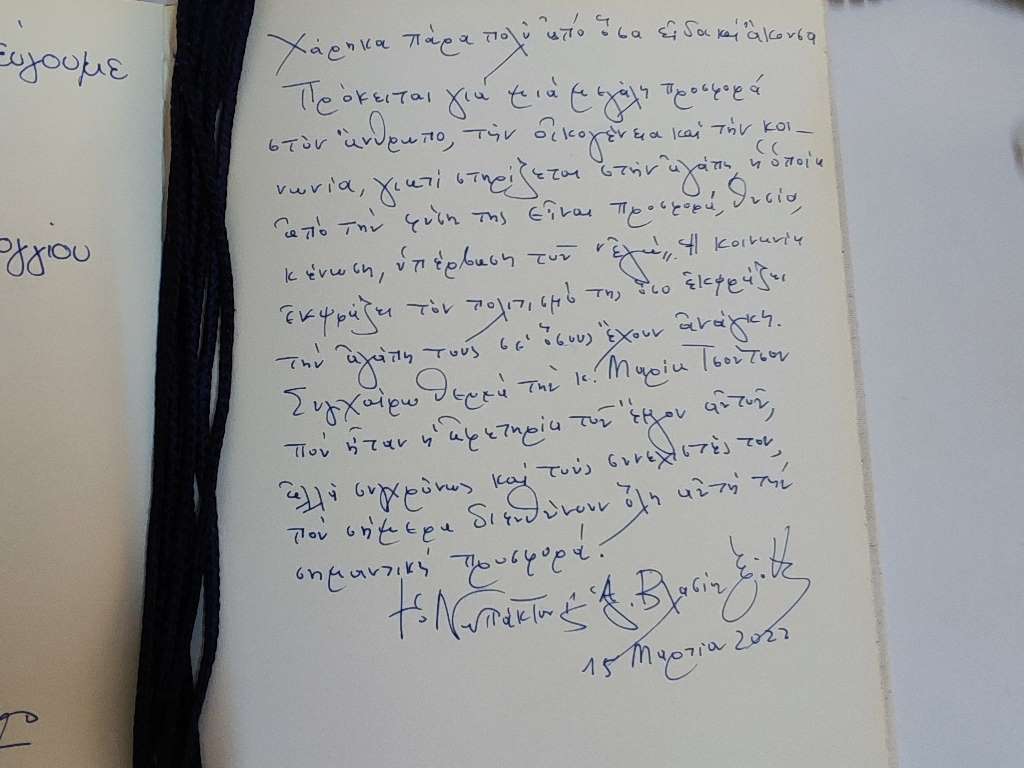 εύγουμε
ογγίου
Χάρηκα πάρα πολύ ἀπό ὅσα εἶδα καί ἄκουσα
Πρόκειται γιά μιά μεγάλη προσφορά
στόν ἄνθρωπο, τήν οἰκογένεια καί τήν κοι-
νωνία, γιατί στηρίζεται στήν ἀγάπη ἡ ὁποία
ἀπό τήν φύση της εἶναι προσφορά, θυσία,
κένωση, τοῦ "ἐγώ". Ἡ κοινωνία
ἐκφράζει τόν πολιτισμό της ὅσο ἐκφράζει
τήν ἀγάπη τους σέ ὅσους ἔχουν ἀνάγκη.
Συγχαίρω θερμά τήν κ. Μαρία
πού ἦταν ἡ τοῦ ἔργου αὐτοῦ,
καί τούς συνεργάτες του,
πού σήμερα διευθύνουν ὅλη αὐτή τήν
σημαντική προσφορά.
† ὁ Ναυπάκτου & Ἁγ. Βλασίου
15 Μαρτίου 2022